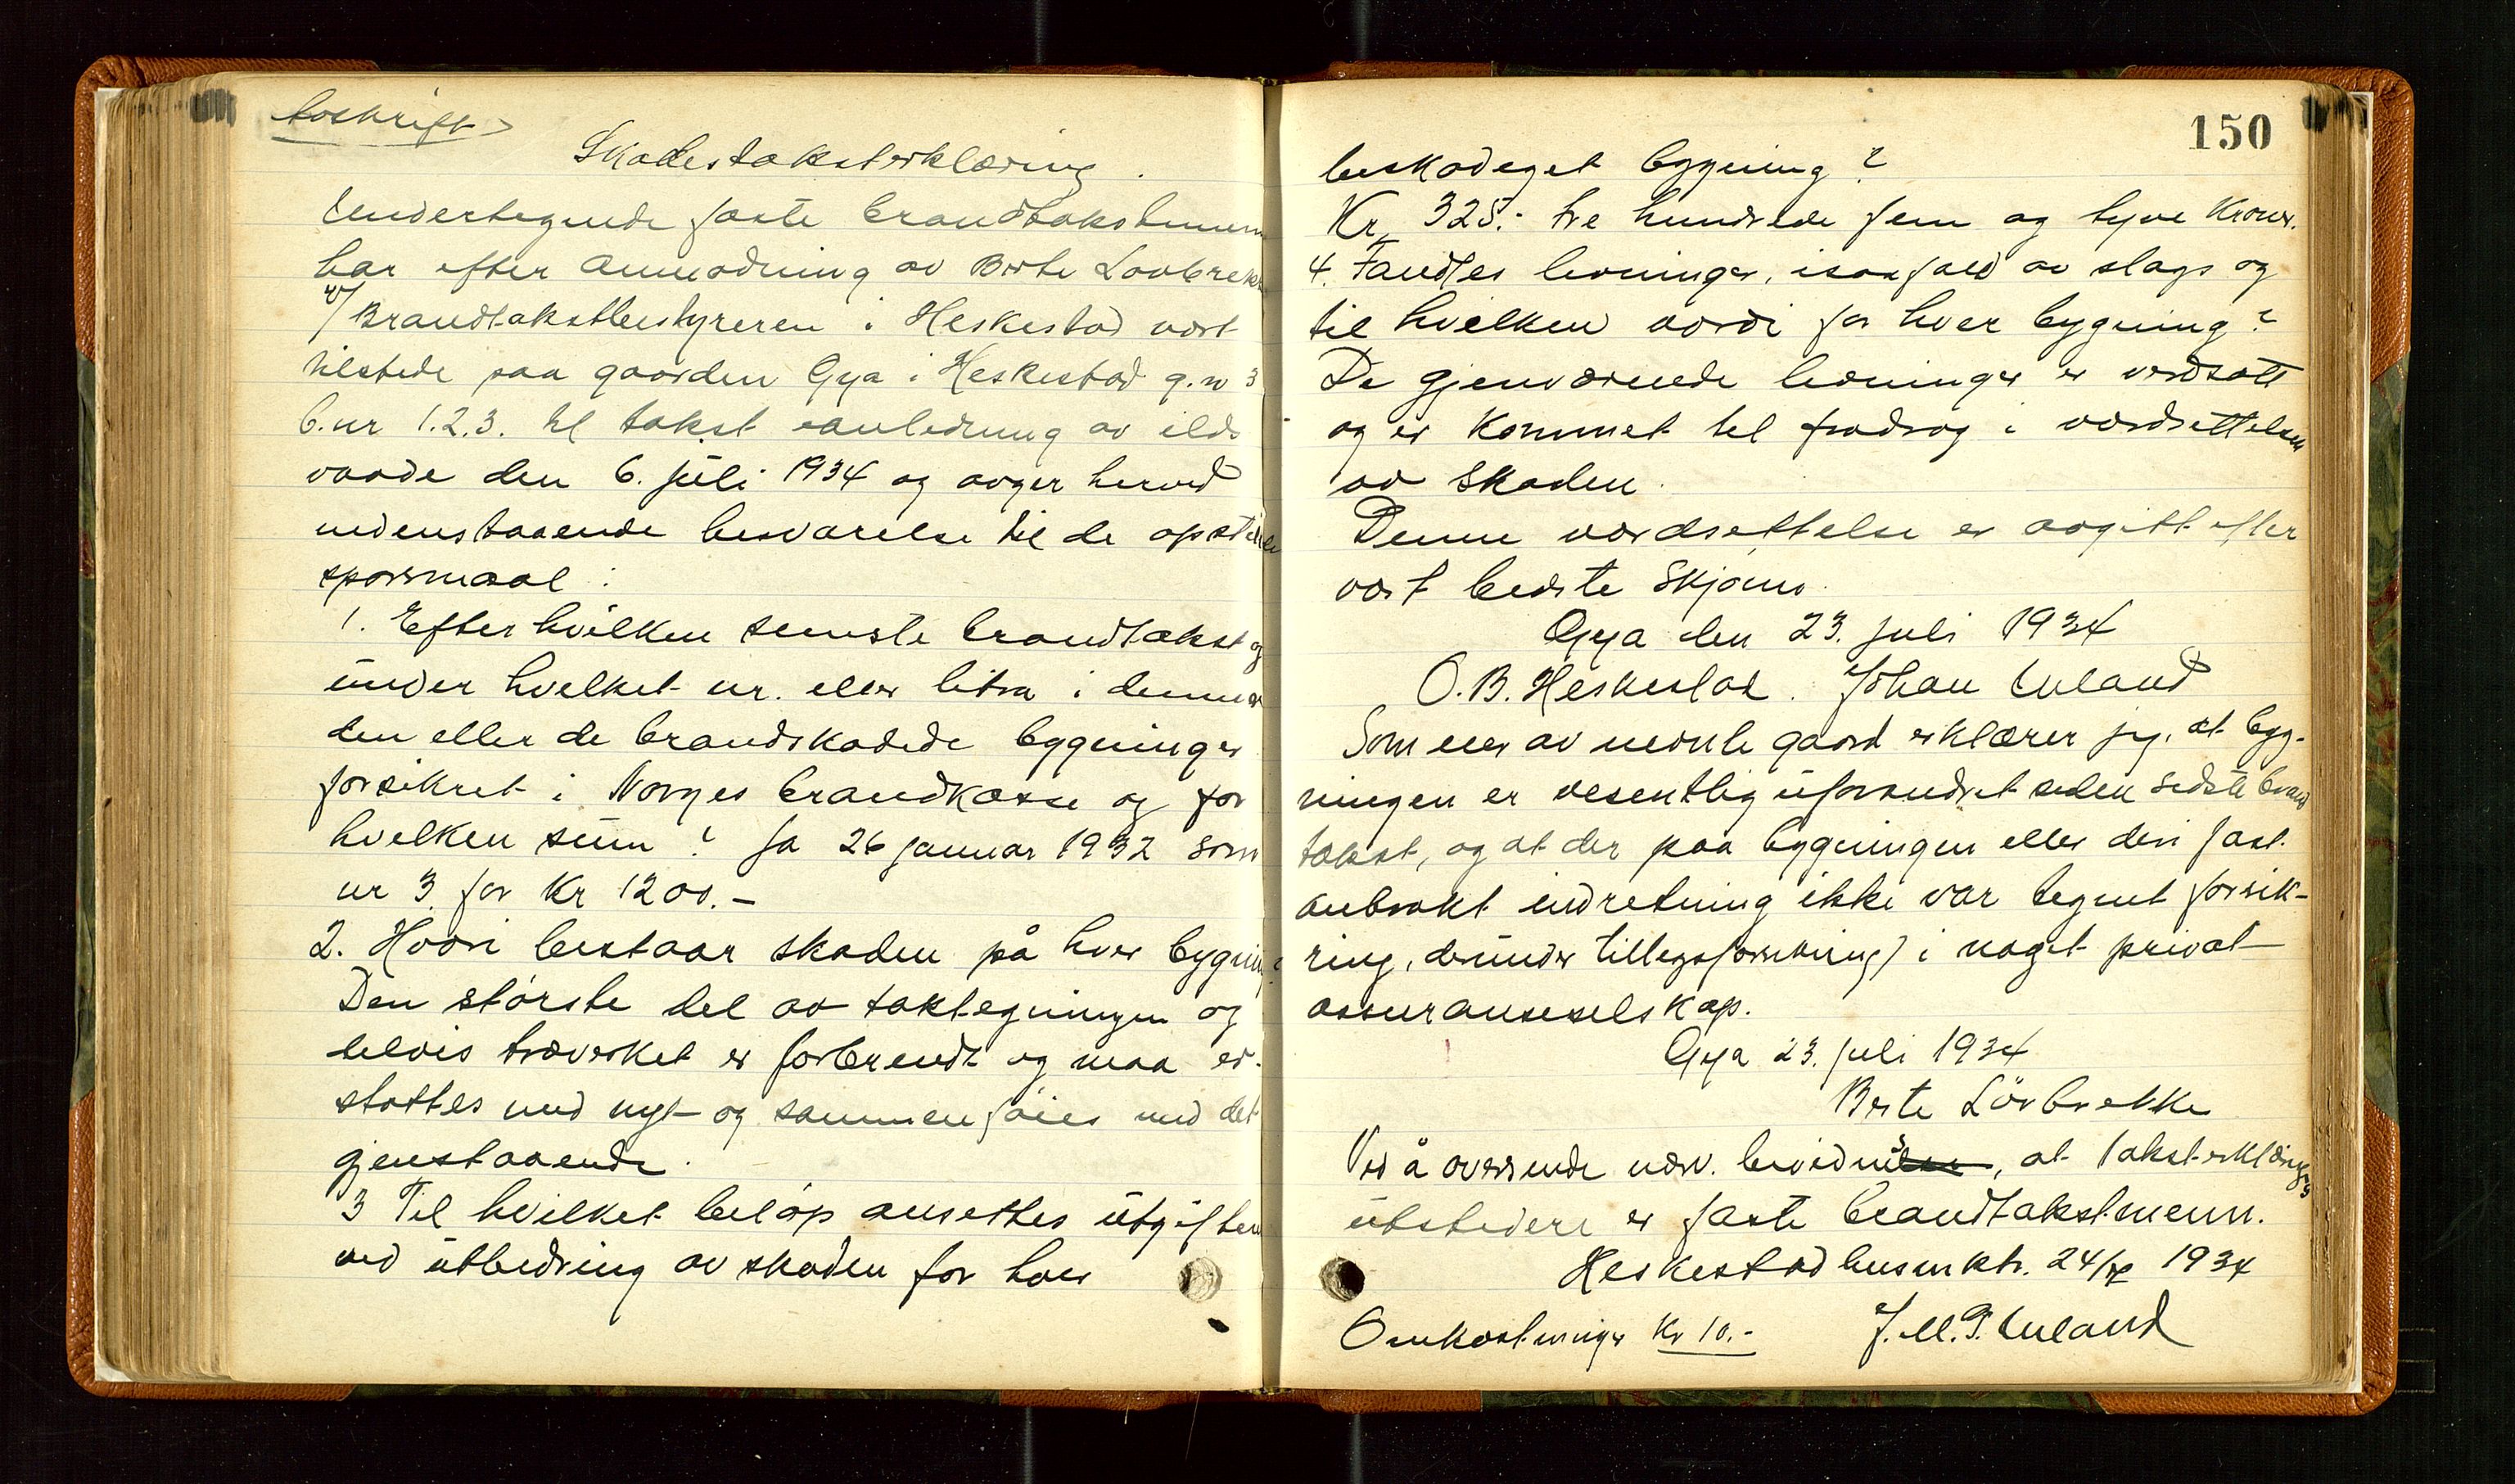 Avskrift
Skadestaksterklæring.
Undertegnede faste brandtakstmenn
har efter anmodning av Berte Løvbrekke
v/ Brandtakstbestyreren i Heskestad vært
tilstede paa gaarden Gya i Heskestad g.nr 3
b.nr 1.2.3. til takst i anledning av ilds-
vaade den 6. juli 1934 og avger herved
nedenstaaende besvarelse til de opstillede
spørsmaal:
1. Efter hvilken seneste brandtakst og
under hvilket nr. eller litra i denne er
den eller de brandskadede bygninger
forsikret i Norges brandkasse og for
hvilken sum? Ja 26 januar 1932 som
nr 3 for Kr 1200.-
2. Hvori bestaar skaden på hver bygning?
Den største del av taktegningen og
delvis træverket er forbrendt og maa er-
stattes med nyt og sammenføies med det
gjenstaaende.
3 Til hvilket beløp ansettes utgiftene
ved utbedring av skaden for hver
150
beskadeget bygning?
Kr 325.- tre hundrede fem og tyve Kroner.
4. Fandtes levninger, isaafald av slags og
til hvilken værdi for hver bygning?
De gjenværende levninger er verdsatt
og er kommet til fradrag i værdsettelsen
av skaden.
Denne værdsettelse er avgitt efter
vort bedste skjønn.
Gya den 23. juli 1934
O.B. Heskestad. Johan Ueland
Som eier av nevnte gaard erklærer jeg, at byg-
ningen er vesentlig uforandret siden sidste brand
takst, og at der paa bygningen eller deri fast
anbrakt indretning ikke var tegnet forsik-
ring, derunder tillegsforsikring) i noget privat
assuranseselskap.
Gya 23. juli 1934
Berte Lövbrekke
Ved å oversende nærv. bevidnes, at taksterklæringens
utstedere er faste brandtakstmenn.
Heskestad lensm.ktr. 24/7 1934
Omkostninger Kr 10.- J.M.T. Ueland